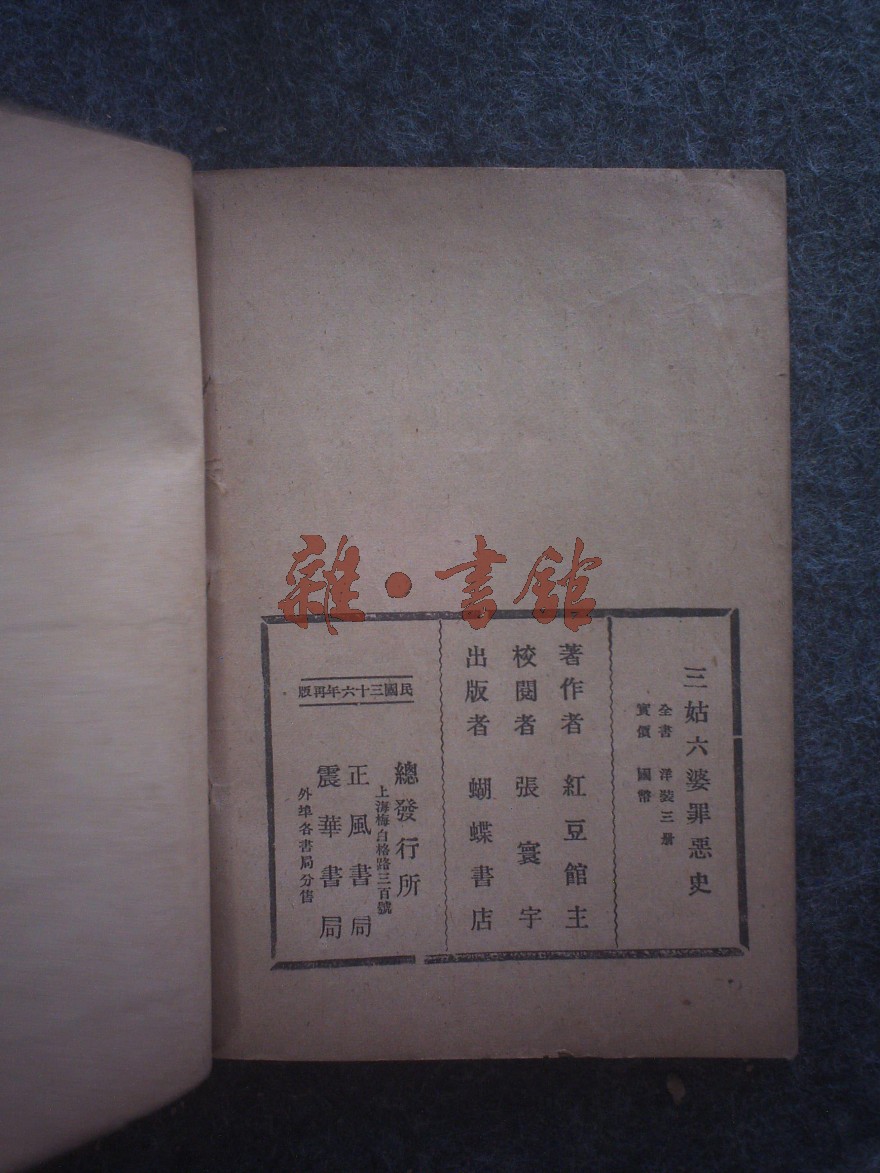 雜·書館
三姑六婆罪惡史
全書 洋裝三册
實價 國幣
著作者 紅豆館主
校閱者 張寰宇
出版者 蝴蝶書店
民國三十六年再版
總發行所
上海梅白格路三百號
正風書局
震華書局
外埠各書局分售